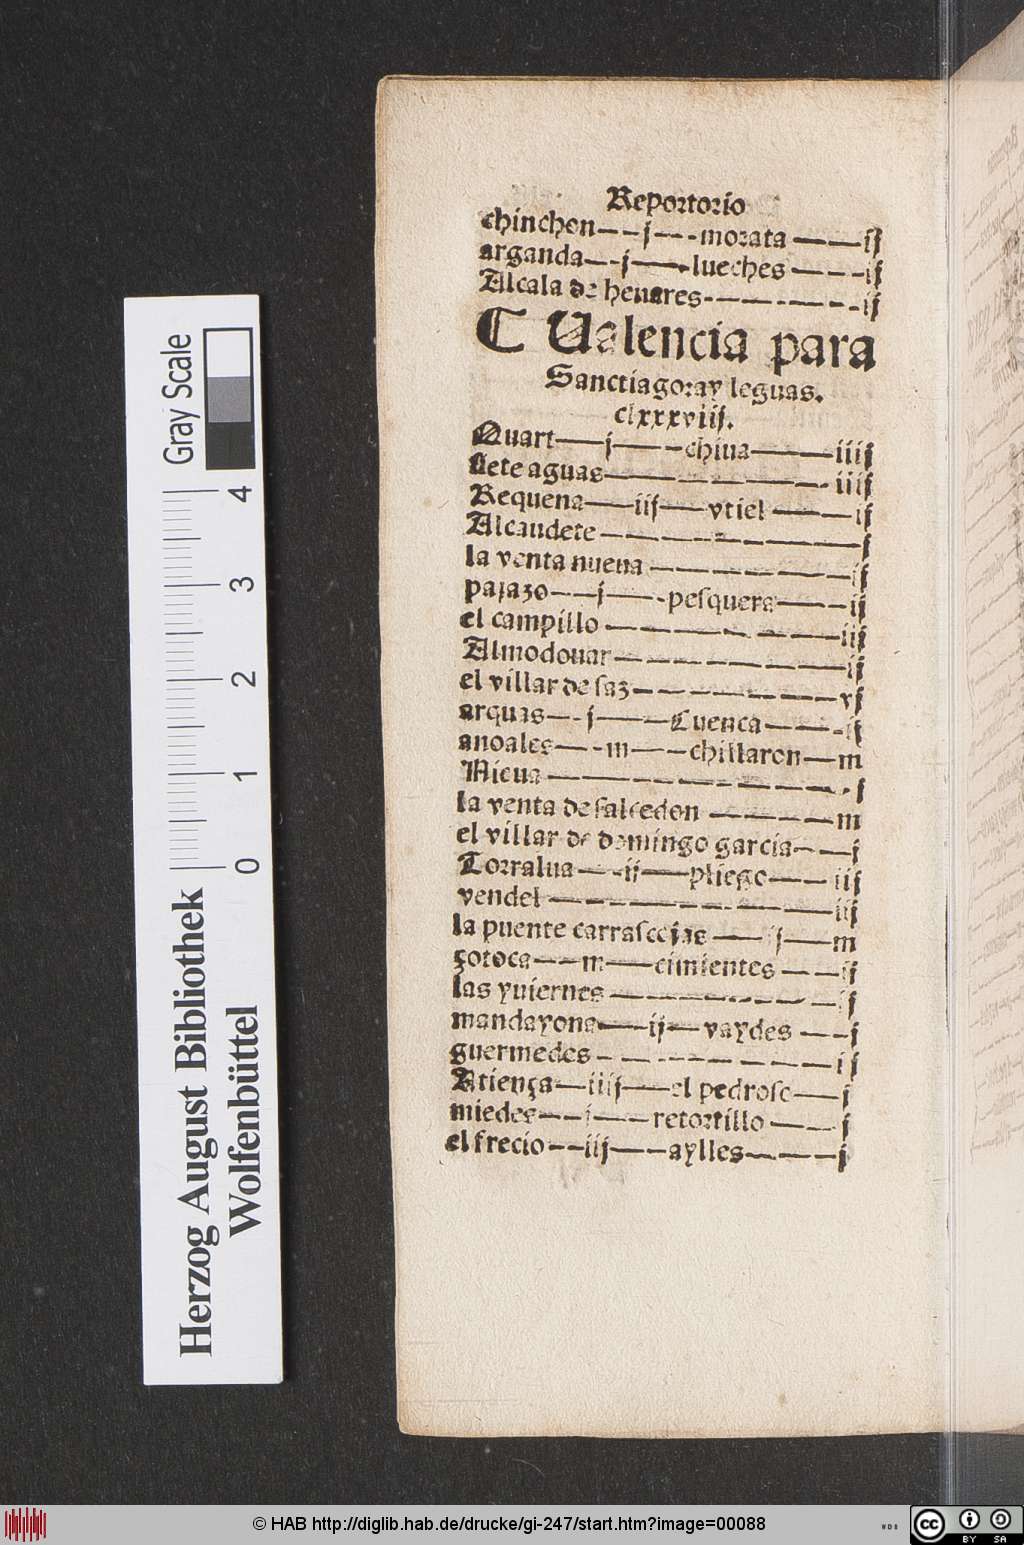 Reportorio
chinchon--j---morata ---ij
arganda--j---lueches ----ij
Alcala de henares--------ij
C Valencia para
Sanctiago ray leguas.
clxxxviij.
Quart---j----chiua-----iiij
Sete aguas--------iiij
Requena---iij---vtiel ---ij
Alcaudete --------j
la venta nueua -------ij
pajazo---j----pesquera----ij
el campillo --------iij
Almodouar --------ij
el villar de saz-------vj
arquas---j----Cuenca----ij
anoales---m----chillaron--m
Nieua ---------j
la venta de salcedon -----m
el villar de domingo garcia---j
Torralua---ij---pliego---iij
vendel --------iij
la puente carrascejas --j--m
çotoca---m---cimientes ---ij
las yuiernes --------ij
mandayona---ij---vaydes ---j
guermedes --------ij
Atiença--iiij---el pedroso---j
miedes---j----retortillo ---j
el frecio--iij----aylles----j
Gray Scale
4
3
2
1
0
Herzog August Bibliothek
Wolfenbüttel
© HAB http://diglib.hab.de/drucke/gi-247/start.htm?image=00088
WDB
cc BY SA